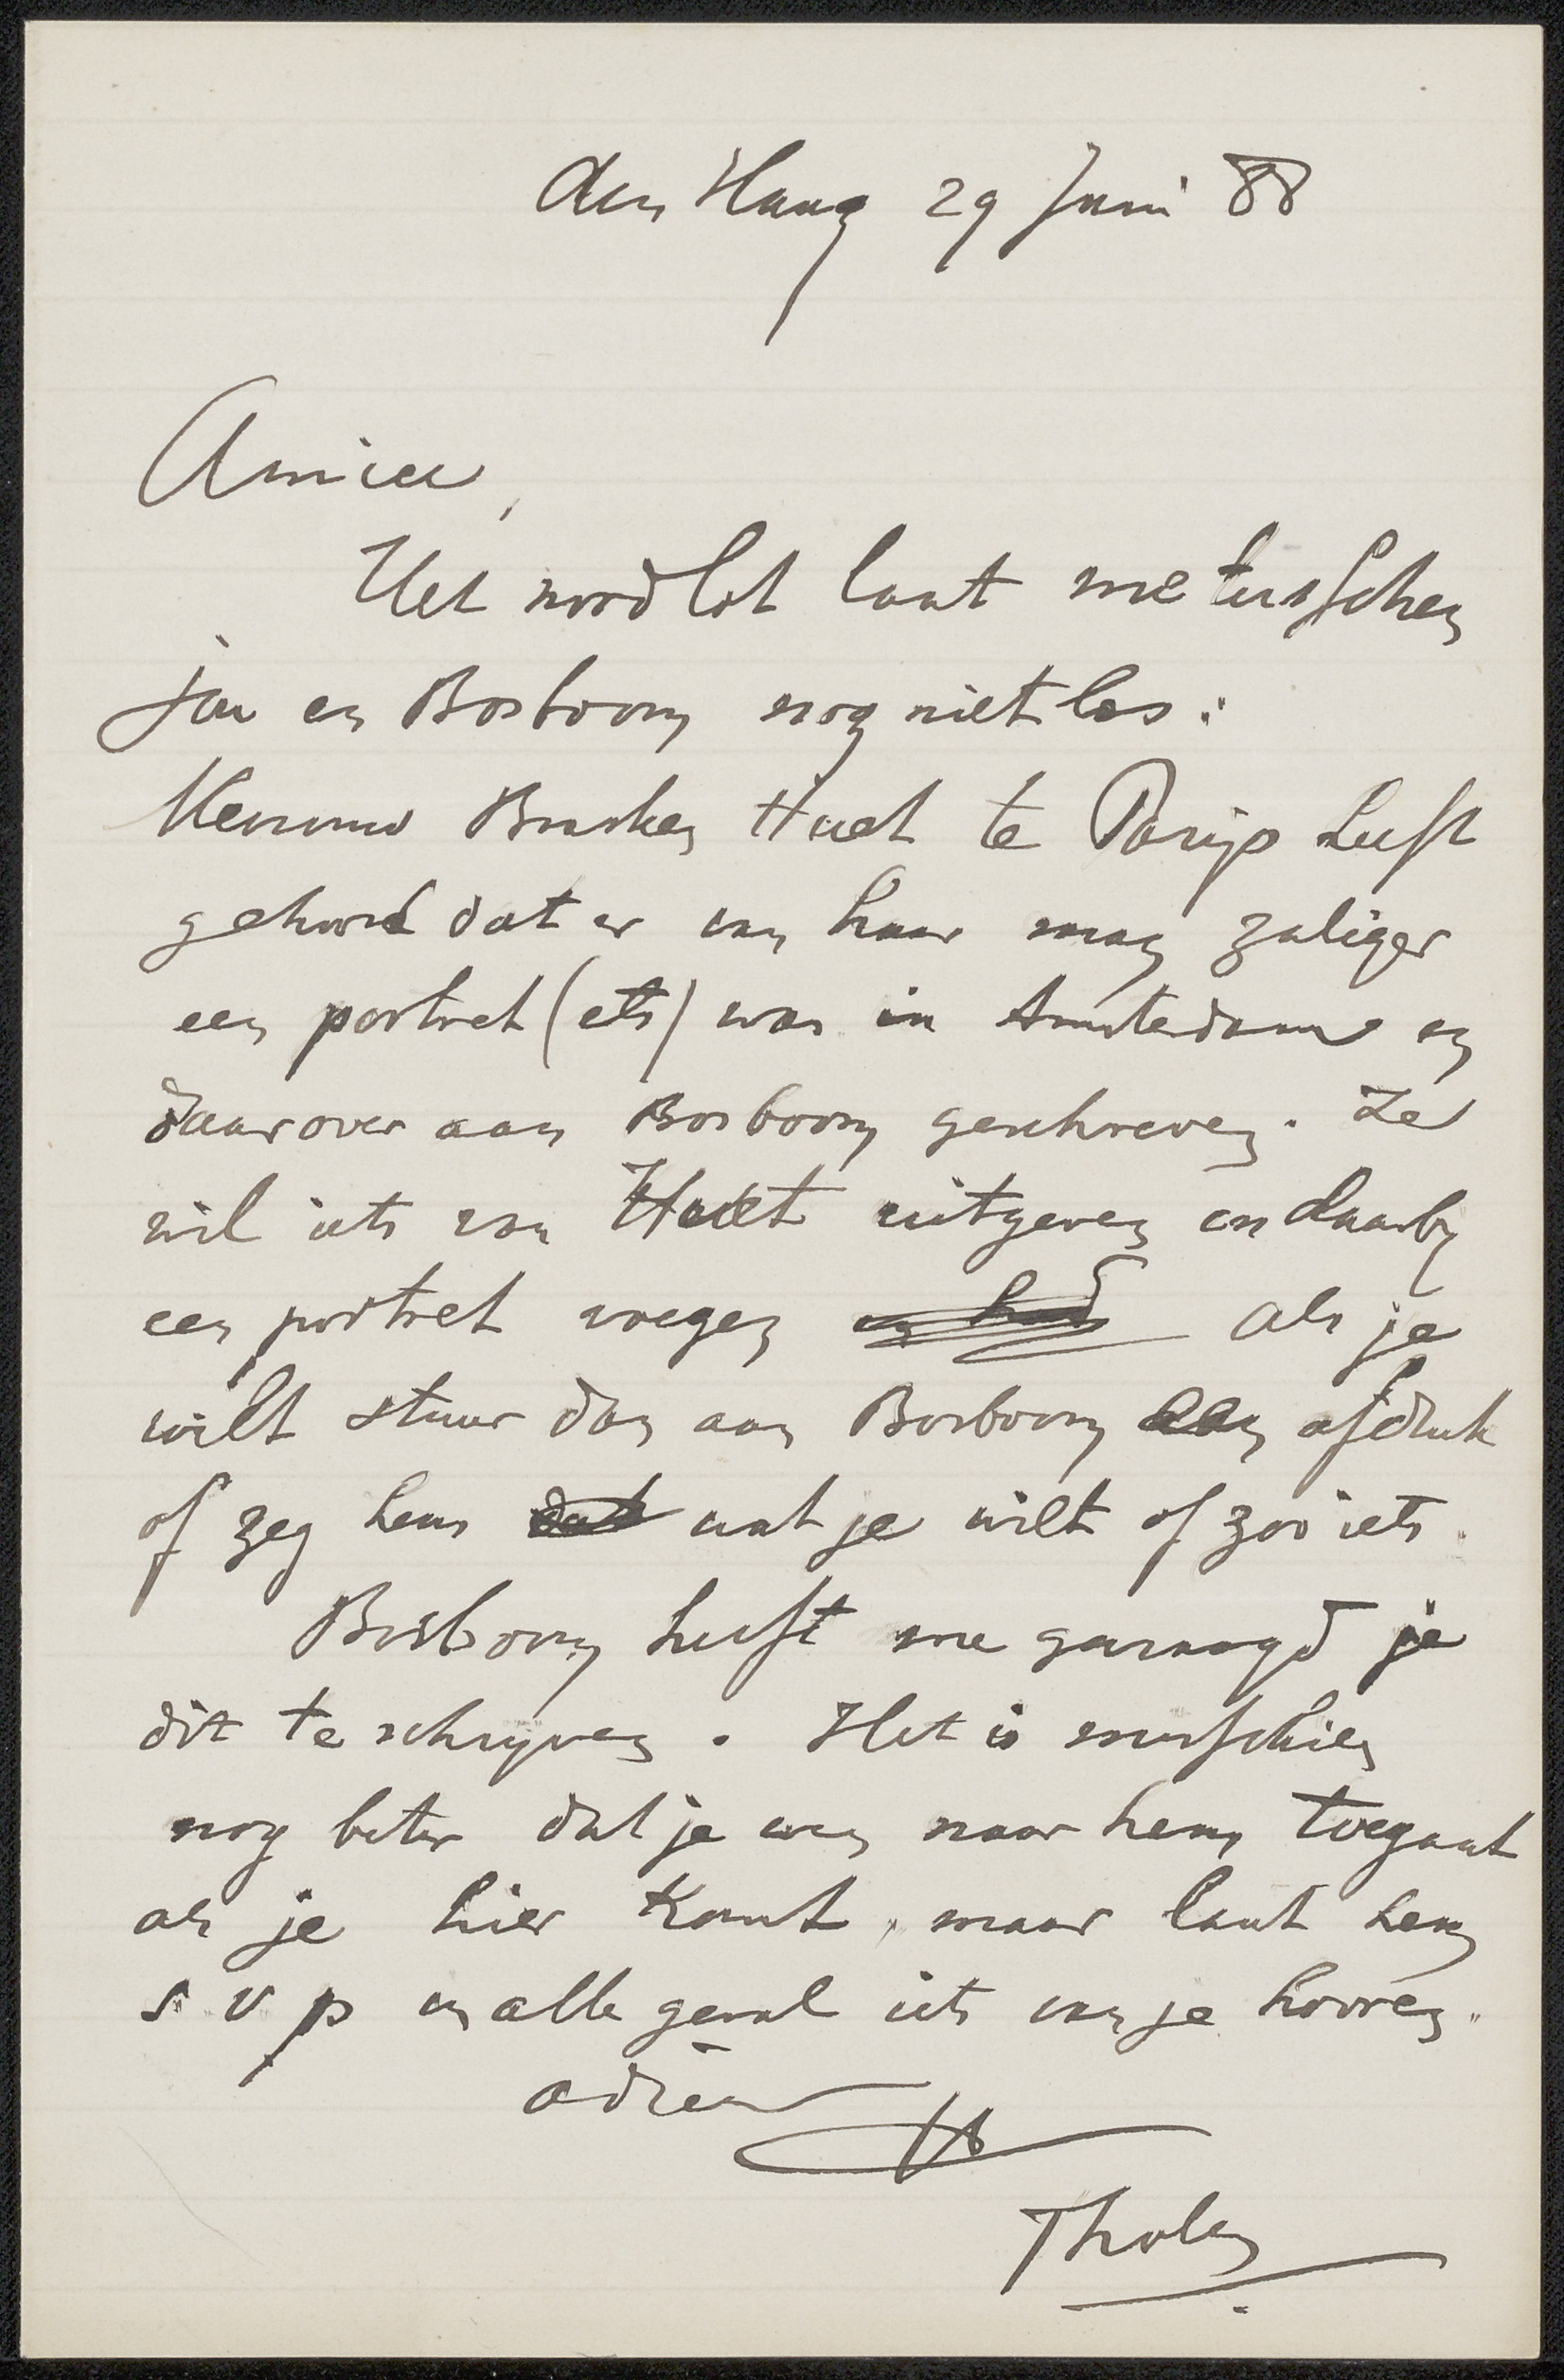 den Haag 29 Juni 88
Amice,
Het noodlot laat me tusschen
jou en Bosboom nog niet los:
Mevrouw Busken Huet te Parijs heeft
gehoord dat er van haar man zaliger
een portret (ets) was in Amsterdam en
daarover aan Bosboom geschreven. Ze
wil iets van Huet uitgeven en daarbij
een portret voegen en had als je
wilt stuur dan aan Bosboom een afdruk
of zeg hem dat wat je wilt of zoo iets.
Bosboom heeft me gevraagd je
dit te schrijven. Het is misschien
nog beter dat je even naar hem toegaat
als je hier komt, maar laat hem
s v p in alle geval iets van je hooren.
adieu
Tholen